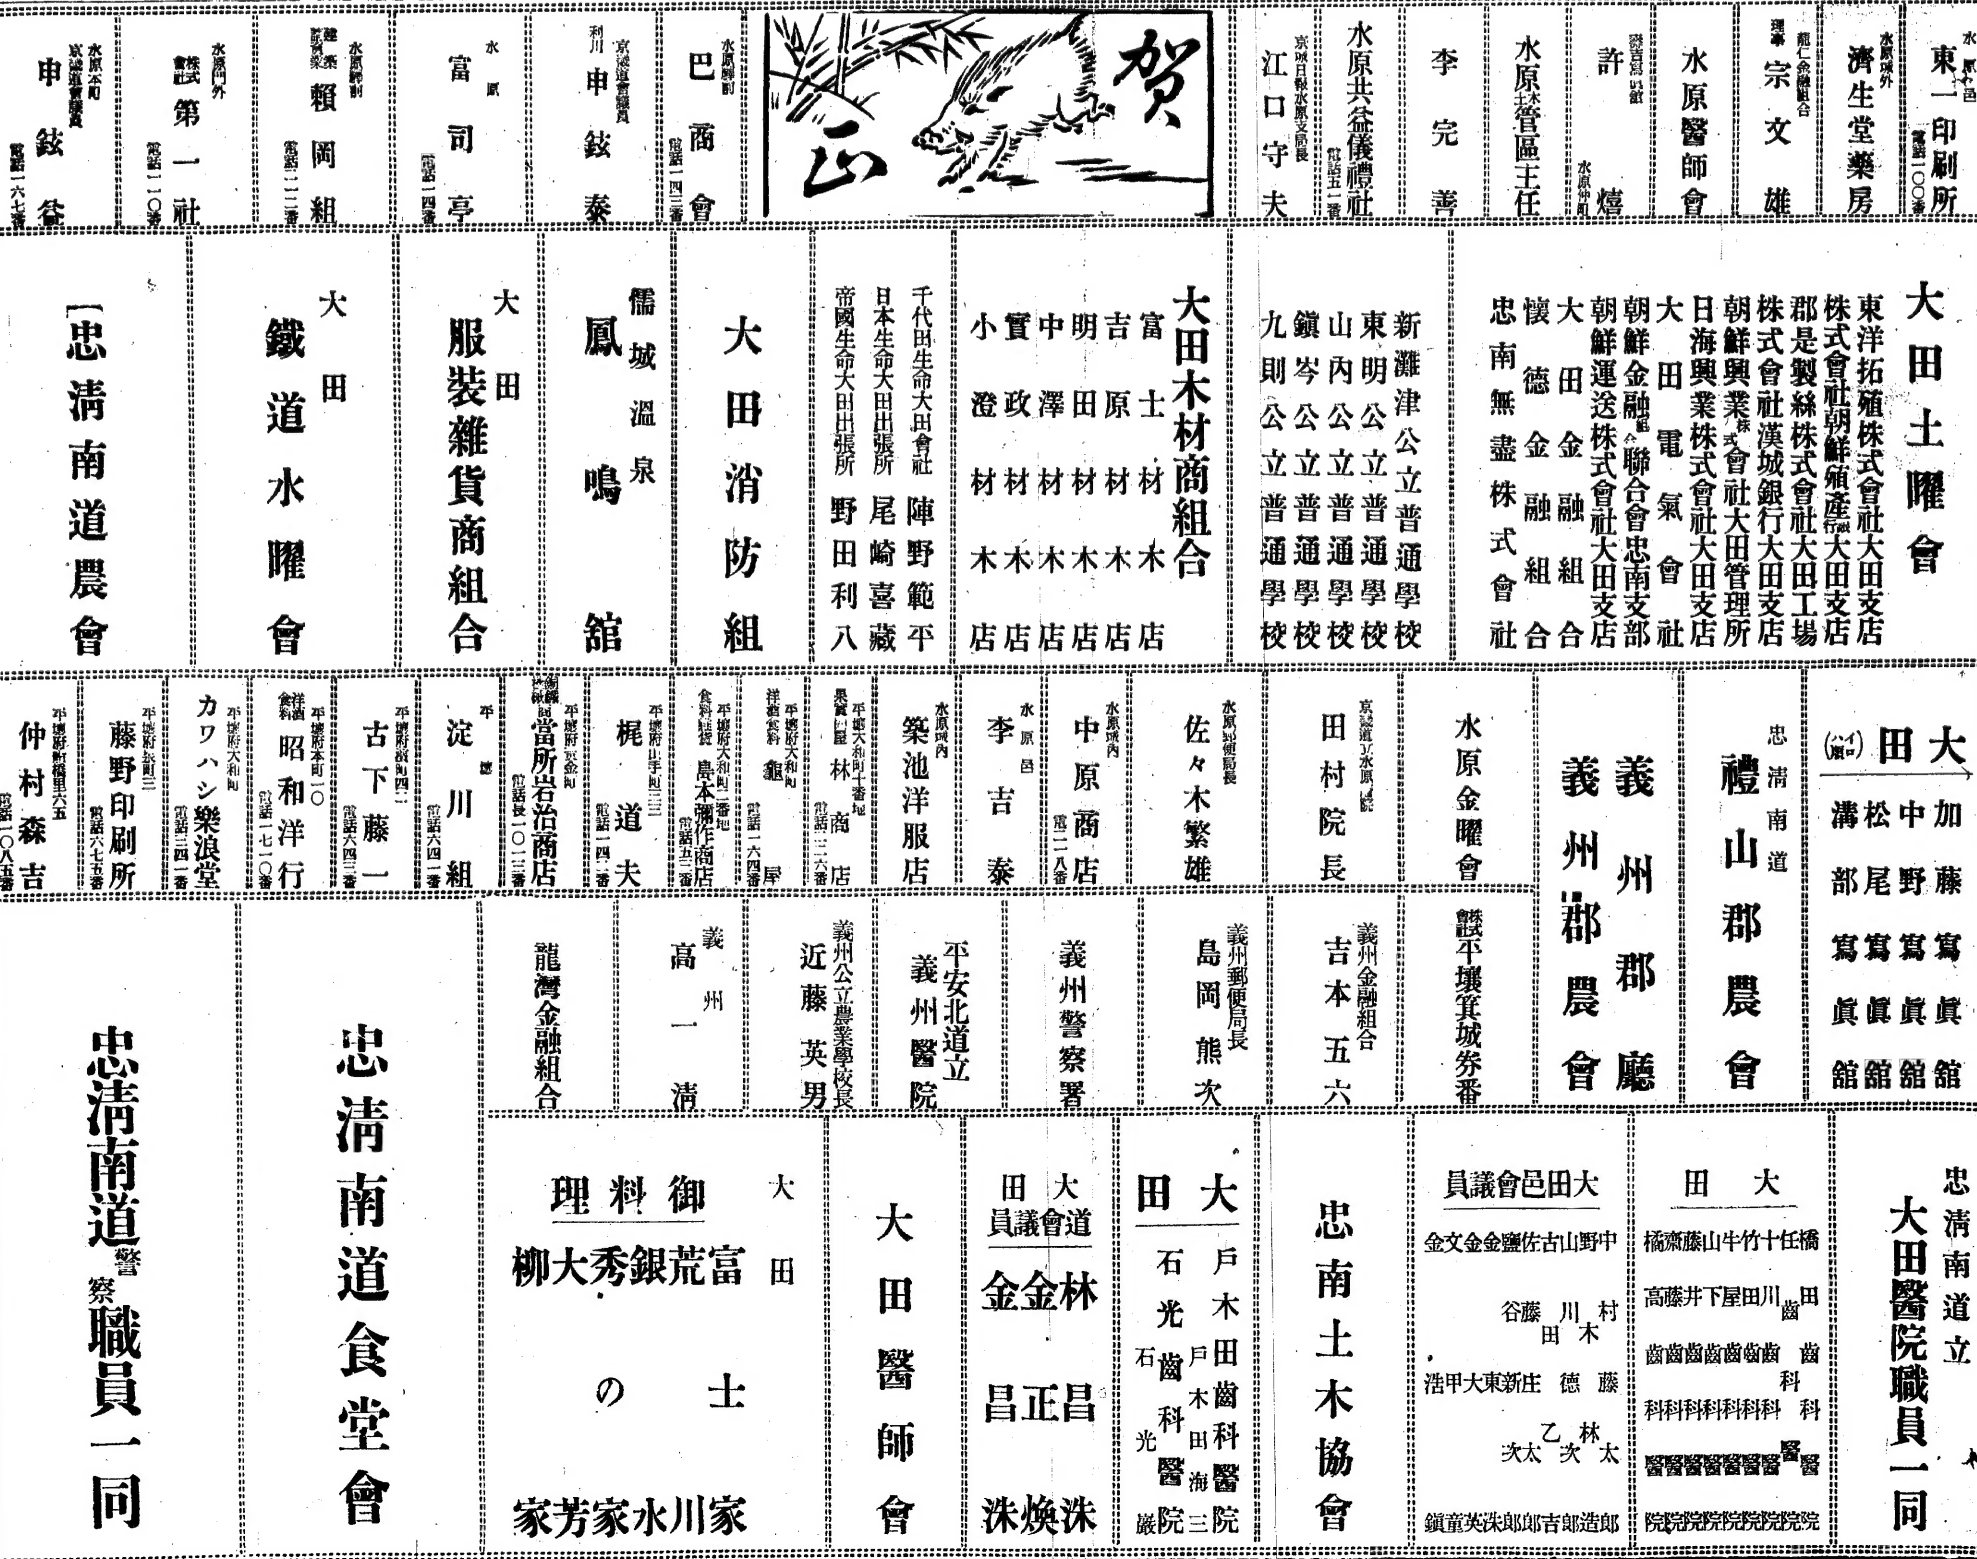 水原邑
東一印刷所
電話一〇〇番
水原城外
濟生堂藥房
龍仁金融組合
理事 宗文雄
水原醫師會
許熺
水原仲町
水原土木管區主任
李完善
水原共益儀禮社
電話五一番
京城日報水原支局長
江口守夫
賀正
水原驛前
巴商會
電話一四三番
京畿道會議員
利川 申鉉泰
水原
富司亭
電話一四番
水原驛前
賴岡組
電話一一二番
水原門外
株式會社 第一社
電話一一〇番
水原本町
京畿道會議員
申鉉益
電話一六七番
大田土曜會
東洋拓殖株式會社大田支店
株式會社朝鮮殖產銀行大田支店
郡是製絲株式會社大田工場
株式會社漢城銀行大田支店
朝鮮興業株式會社大田管理所
日海興業株式會社大田支店
大田電氣會社
朝鮮金融組合聯合會忠南支部
朝鮮運送株式會社大田支店
大田金融組合
懷德金融組合
忠南無盡株式會社
新灘津公立普通學校
東明公立普通學校
山內公立普通學校
鎭岑公立普通學校
九則公立普通學校
大田木材商組合
富士材木店
吉原材木店
明田材木店
中澤材木店
實政材木店
小澄材木店
千代田生命大田會社 陣野範平
日本生命大田出張所 尾崎喜藏
帝國生命大田出張所 野田利八
大田消防組
儒城溫泉
鳳鳴舘
大田
服裝雜貨商組合
大田
鐵道水曜會
忠淸南道農會
大田
(イロハ順)
加藤寫眞舘
中野寫眞舘
松尾寫眞舘
溝部寫眞舘
忠淸南道
禮山郡農會
義州郡廳
義州郡農會
水原金曜會
京畿道立水原醫院
田村院長
水原郵便局長
佐々木繁雄
水原城內
中原商店
電二一八番
水原邑
李吉泰
水原城內
築池洋服店
平壤大和町十番地
果實問屋 林商店
電話一三二六番
平壤府大和町
洋酒食料 龜屋
電話一六四番
平壤府大和町二番地
食料雜貨 島本彌作商店
電話五三番
平壤府山手町三三
梶道夫
電話一四二番
平壤府京金町
當所岩治商店
電話長一〇一三番
平壤
淀川組
電話六四一番
平壤府濱町四二
古下藤一
電話六四三番
平壤府本町一〇
洋酒食料 昭和洋行
電話一七一〇番
平壤府大和町
カワハシ樂浪堂
電話三四一番
平壤府泉町三
藤野印刷所
電話六七五番
平壤府新橋里六五
仲村森吉
電話一〇八五番
株式會社平壤箕城券番
義州金融組合
吉本五六
義州郵便局長
島岡熊次
義州警察署
平安北道立
義州醫院
義州公立農業學校長
近藤英男
義州
高一淸
龍灣金融組合
忠淸南道食堂會
忠淸南道警察職員一同
忠淸南道立
大田醫院職員一同
大田
橋田齒科醫院
任齒科醫院
十川齒科醫院
竹田齒科醫院
牛屋齒科醫院
山下齒科醫院
藤井齒科醫院
齋藤齒科醫院
橘高齒科醫院
大田邑會議員
中村藤太郎
野木林造
山川德次郎
古田乙吉
佐藤庄太郎
鹽谷新次郎
金東洙
金大英
文甲童
金浩鎭
忠南土木協會
大田
戶木田齒科醫院
戶木田海三
石光齒科醫院
石光巖
大田
道會議員
林昌洙
金正煥
金昌洙
大田醫師會
大田
御料理
富士家
荒川
銀水
秀の家
大芳
柳家